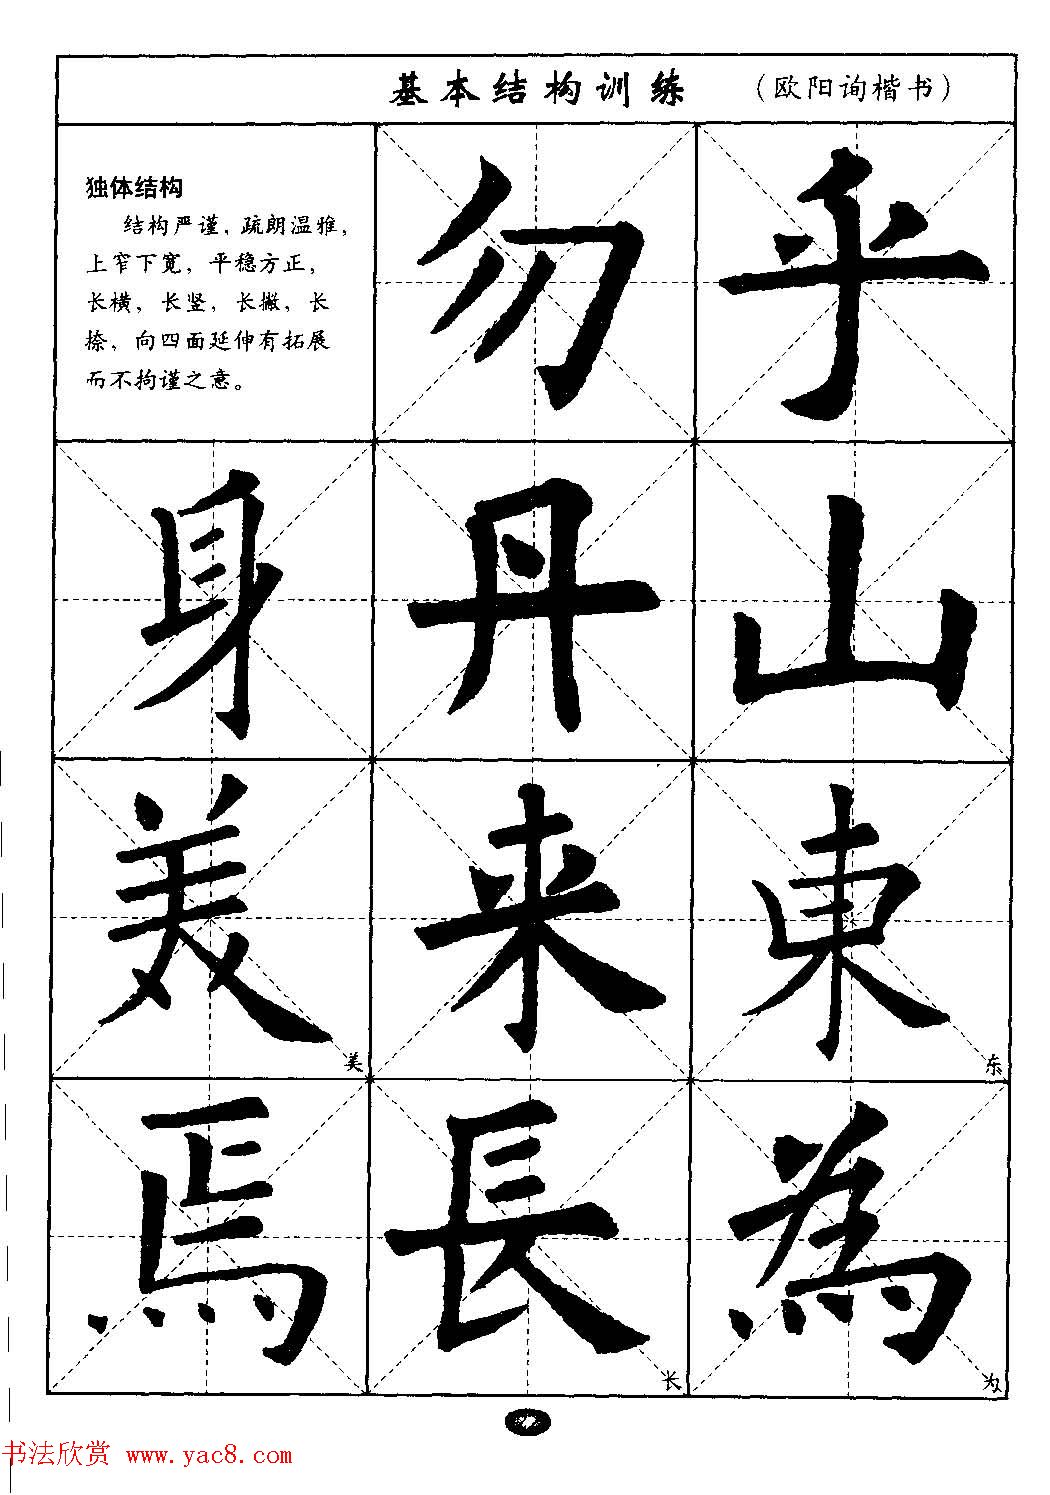 基本结构训练 （欧阳询楷书）
独体结构
结构严谨，疏朗温雅，
上窄下宽，平稳方正，
长横，长竖，长撇，长
捺，向四面延伸有拓展
而不拘谨之意。
勿 乎
身 丹 山
美 来 東
美 东
焉 長 為
长 为
书法欣赏 www.yac8.com